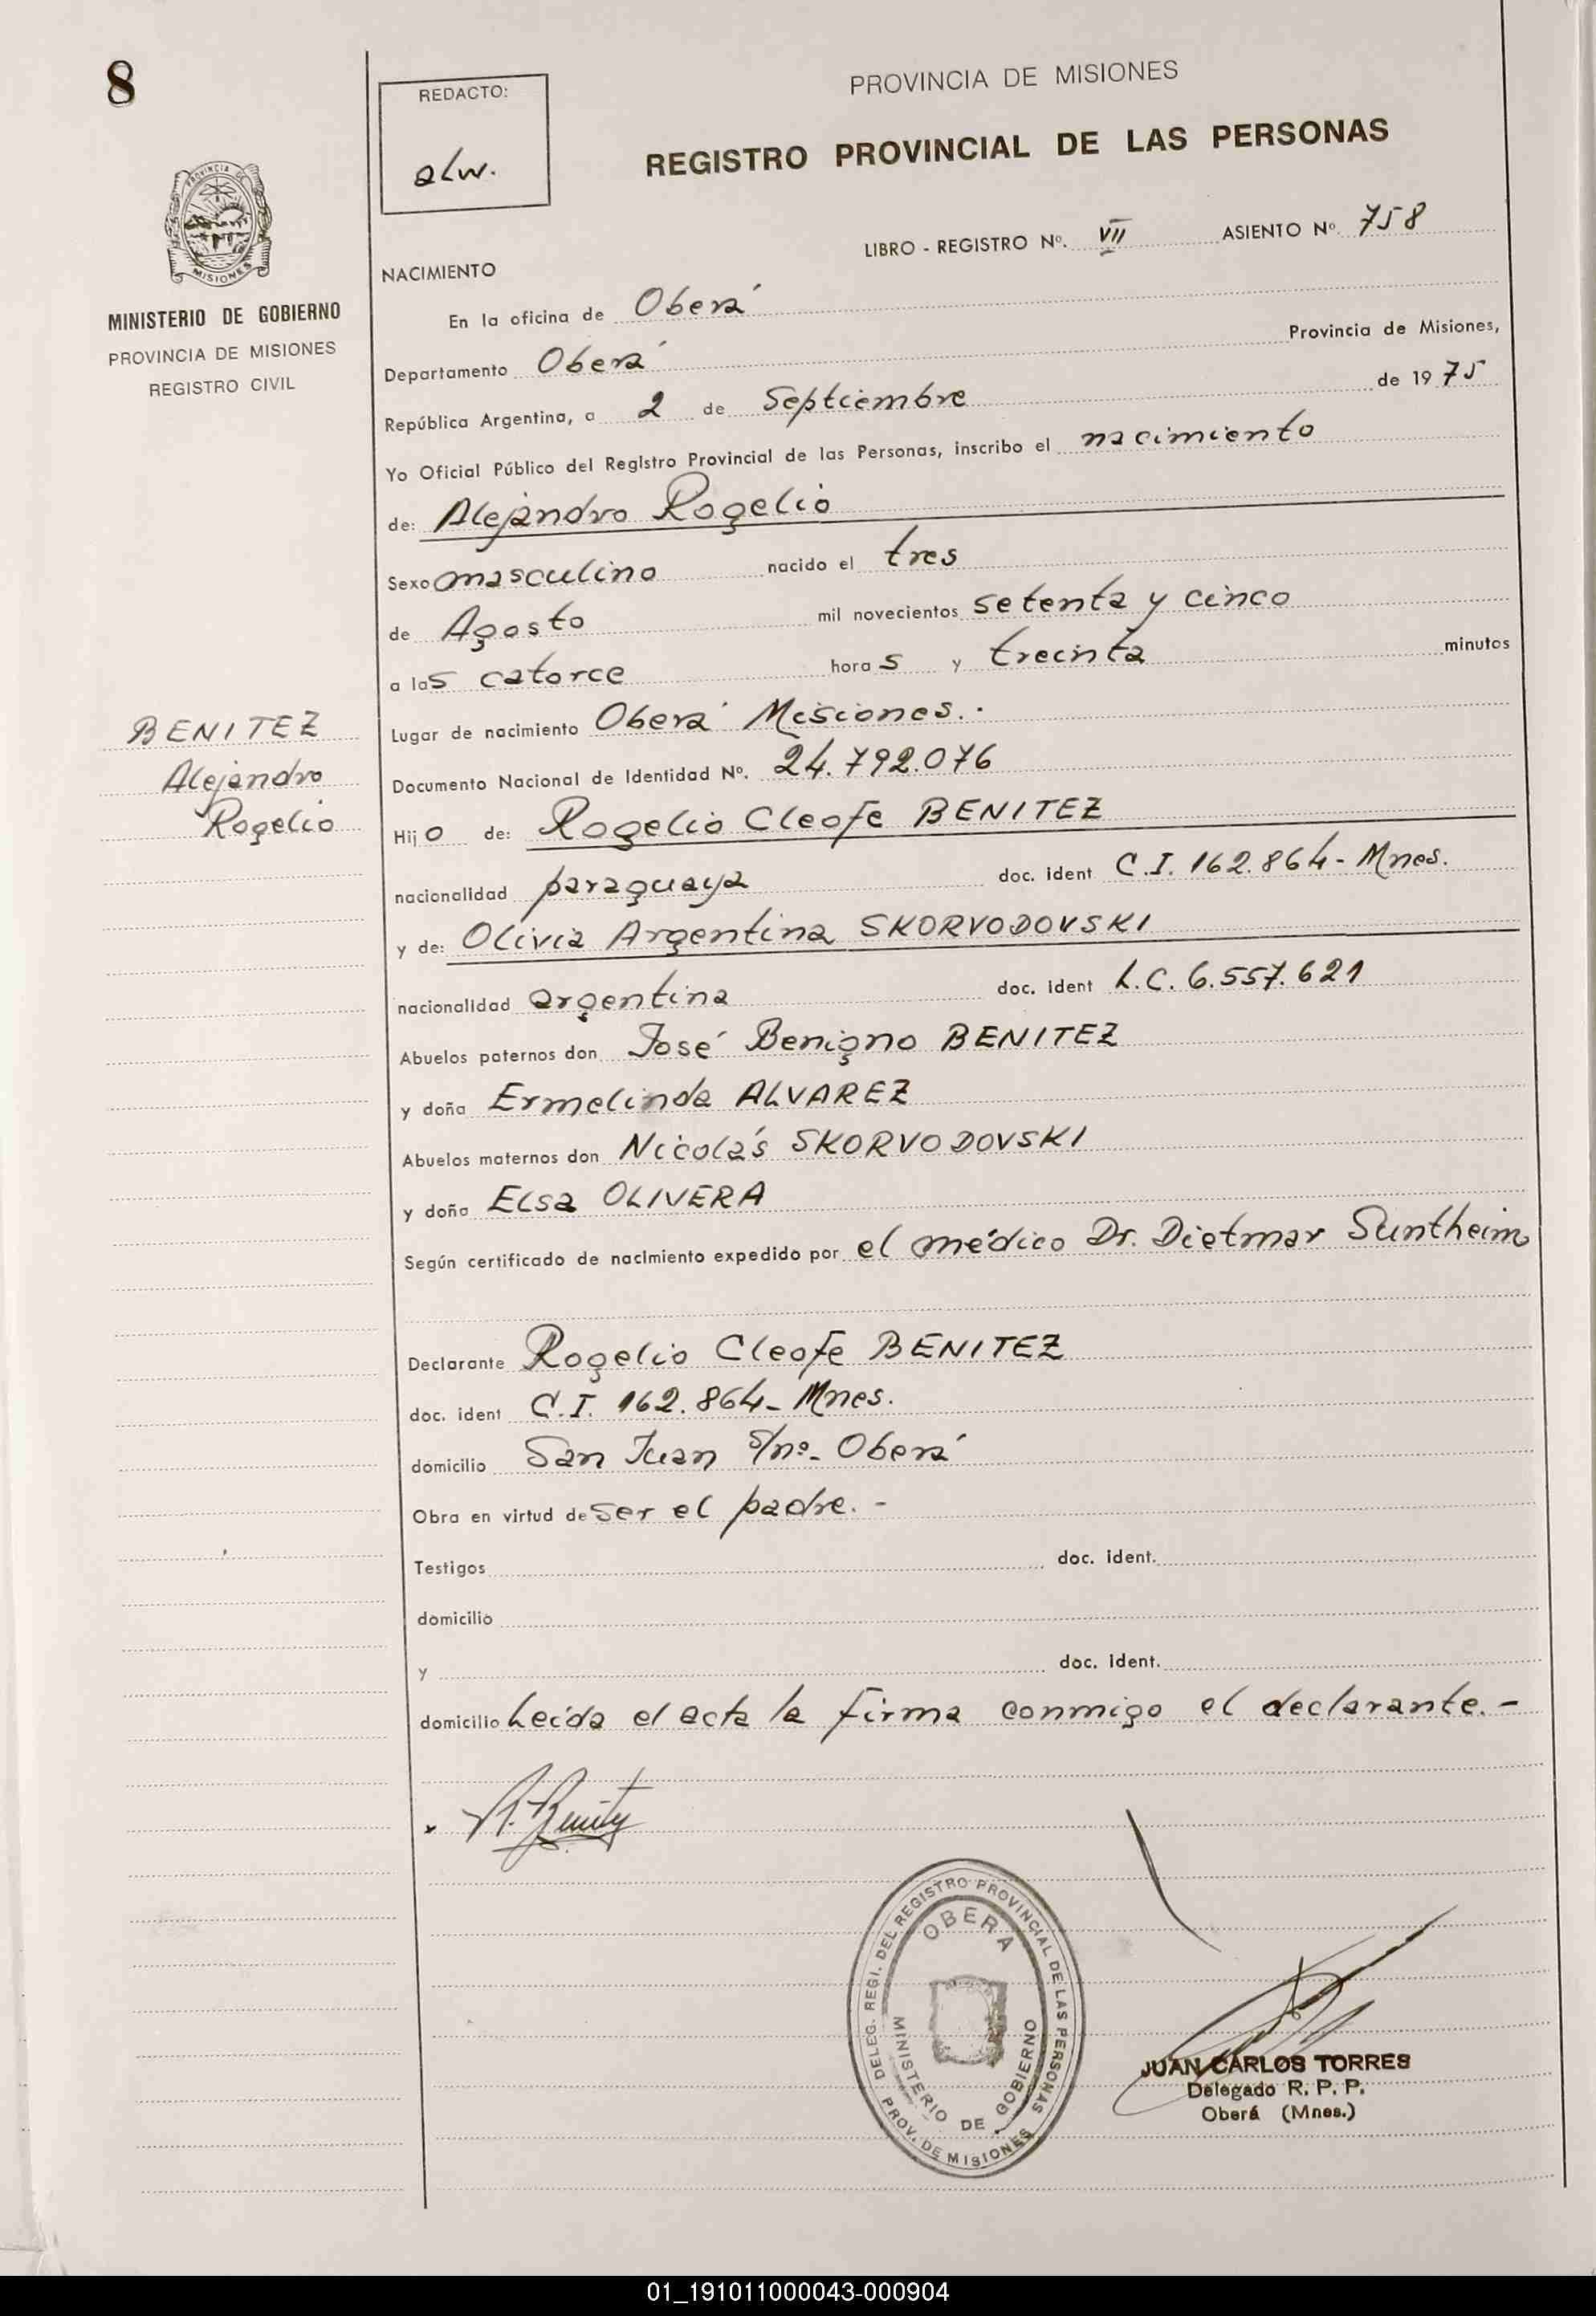 8
REDACTO:
alw.
PROVINCIA DE MISIONES
REGISTRO PROVINCIAL DE LAS PERSONAS
LIBRO - REGISTRO Nº. VII ASIENTO Nº. 758
PROVINCIA DE
MISIONES
MINISTERIO DE GOBIERNO
PROVINCIA DE MISIONES
REGISTRO CIVIL
NACIMIENTO
En la oficina de Oberá
Departamento Oberá Provincia de Misiones,
República Argentina, a 2 de Septiembre de 1975
Yo Oficial Público del Registro Provincial de las Personas, inscribo el nacimiento
de: Alejandro Rogelio
Sexo masculino nacido el tres
de Agosto mil novecientos setenta y cinco
a las catorce horas y treinta minutos
Lugar de nacimiento Oberá Misiones.-
BENITEZ
Alejandro
Rogelio
Documento Nacional de Identidad Nº. 24.792.076
Hijo de: Rogelio Cleofe BENITEZ
nacionalidad paraguaya doc. ident C.I. 162.864- Mnes.
y de: Olivia Argentina SKORVODOVSKI
nacionalidad argentina doc. ident L.C. 6.557.621
Abuelos paternos don José Benigno BENITEZ
y doña Ermelinda ALVAREZ
Abuelos maternos don Nicolás SKORVODOVSKI
y doña Elsa OLIVERA
Según certificado de nacimiento expedido por el médico Dr. Dietmar Suntheim
Declarante Rogelio Cleofe BENITEZ
doc. ident C.I. 162.864- Mnes.
domicilio San Juan s/nº- Oberá
Obra en virtud de ser el padre.-
Testigos doc. ident.
domicilio
y doc. ident.
domicilio Leída el acta la firma conmigo el declarante.-
R. Benitez
DELEG. REGI. DEL REGISTRO PROVINCIAL DE LAS PERSONAS
OBERA
MINISTERIO DE GOBIERNO
PROV. DE MISIONES
JUAN CARLOS TORRES
Delegado R. P. P.
Oberá (Mnes.)
01_191011000043-000904